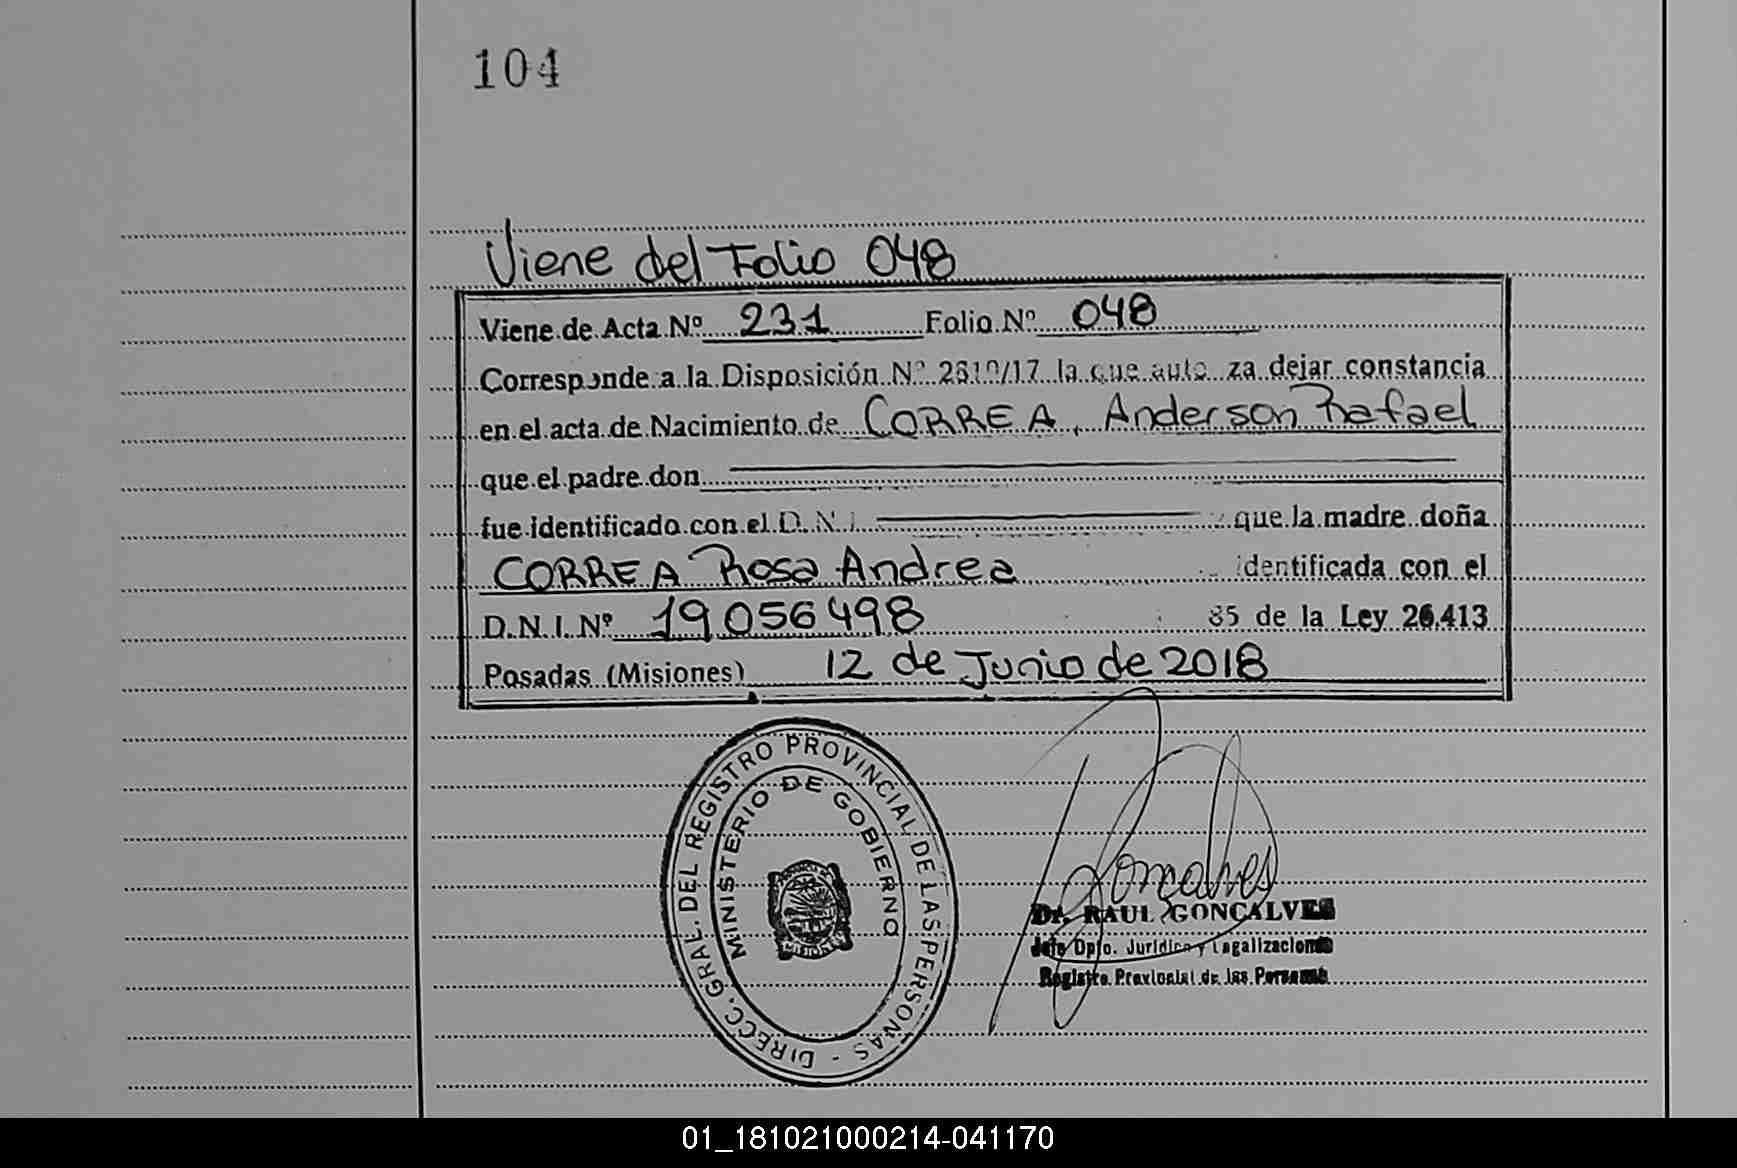 104
Viene del Folio 048
Viene de Acta Nº 231 Folio Nº 048
Corresponde a la Disposición Nº 2810/17 la que auto za dejar constancia
en el acta de Nacimiento de CORREA, Anderson Rafael
que el padre don
fue identificado con el D.N.I. que la madre doña
CORREA Rosa Andrea identificada con el
D.N.I. Nº 19056498 85 de la Ley 26.413
Posadas (Misiones) 12 de Junio de 2018
DIRECC. GRAL. DEL REGISTRO PROVINCIAL DE LAS PERSONAS -
MINISTERIO DE GOBIERNO
MISIONES
Gonçalves
Dr. RAUL GONÇALVES
Jefe Dpto. Jurídico y Legalizaciones
Registro Provincial de las Personas
01_181021000214-041170